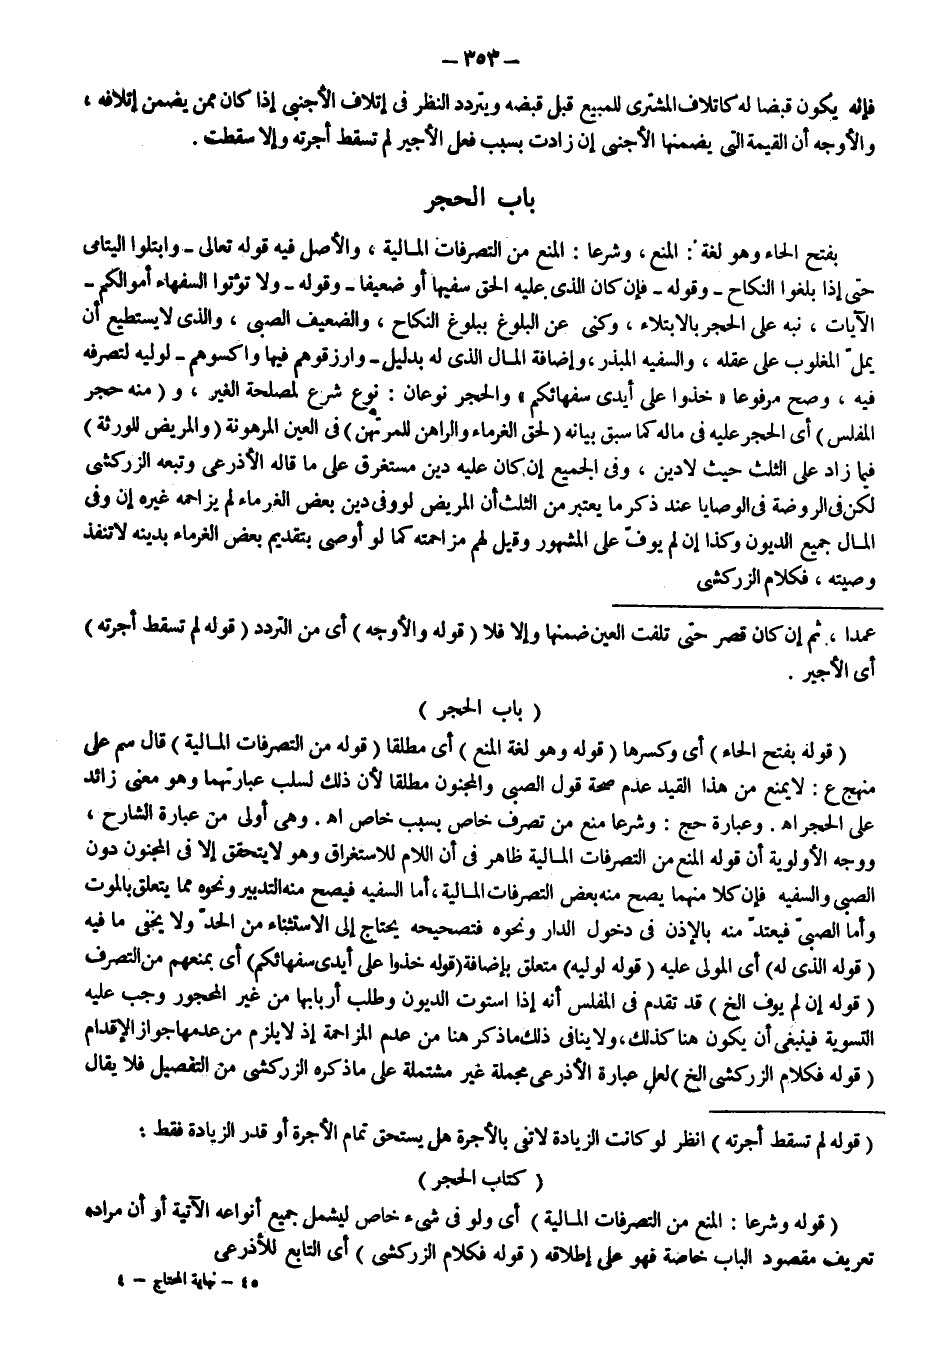 – ٣٥٣ –
فإنه يكون قبضا له كاتلاف المشترى للمبيع قبل قبضه ويتردد النظر فى إتلاف الأجنبى إذا كان ممن يضمن إتلافه ،
والأوجه أن القيمة التى يضمنها الأجنبى إن زادت بسبب فعل الأجير لم تسقط أجرته وإلا سقطت .
باب الحجر
بفتح الحاء وهو لغة : المنع ، وشرعا : المنع من التصرفات المالية ، والأصل فيه قوله تعالى – وابتلوا اليتامى
حتى إذا بلغوا النكاح – وقوله – فإن كان الذى عليه الحق سفيها أو ضعيفا – وقوله – ولا تؤتوا السفهاء أموالكم –
الآيات ، نبه على الحجر بالابتلاء ، وكنى عن البلوغ ببلوغ النكاح ، والضعيف الصبى ، والذى لايستطيع أن
يملّ المغلوب على عقله ، والسفيه المبذر ، وإضافة المال الذى له بدليل – وارزقوهم فيها واكسوهم – لوليه لتصرفه
فيه ، وصح مرفوعا « خذوا على أيدى سفهائكم » والحجر نوعان : نوع شرع لمصلحة الغير ، و ( منه حجر
المفلس ) أى الحجر عليه فى ماله كما سبق بيانه ( لحق الغرماء والراهن للمرتهن ) فى العين المرهونة ( والمريض للورثة )
فيما زاد على الثلث حيث لادين ، وفى الجميع إن كان عليه دين مستغرق على ما قاله الأذرعى وتبعه الزركشى
لكن فى الروضة فى الوصايا عند ذكر ما يعتبر من الثلث أن المريض لو وفى دين بعض الغرماء لم يزاحمه غيره إن وفى
المال جميع الديون وكذا إن لم يوفّ على المشهور وقيل لهم مزاحمته كما لو أوصى بتقديم بعض الغرماء بدينه لاتنفذ
وصيته ، فكلام الزركشى
عمدا ، ثم إن كان قصر حتى تلفت العين ضمنها وإلا فلا ( قوله والأوجه ) أى من التردد ( قوله لم تسقط أجرته )
أى الأجير .
( باب الحجر )
( قوله بفتح الحاء ) أى وكسرها ( قوله وهو لغة المنع ) أى مطلقا ( قوله من التصرفات المالية ) قال سم على
منهج ع : لايمنع من هذا القيد عدم صحة قول الصبى والمجنون مطلقا لأن ذلك لسلب عبارتهما وهو معنى زائد
على الحجر اه . وعبارة حج : وشرعا منع من تصرف خاص بسبب خاص اه . وهى أولى من عبارة الشارح ،
ووجه الأولوية أن قوله المنع من التصرفات المالية ظاهر فى أن اللام للاستغراق وهو لايتحقق إلا فى المجنون دون
الصبى والسفيه فإن كلا منهما يصح منه بعض التصرفات المالية ، أما السفيه فيصح منه التدبير ونحوه مما يتعلق بالموت
وأما الصبىّ فيعتدّ منه بالإذن فى دخول الدار ونحوه فتصحيحه يحتاج إلى الاستثناء من الحدّ ولا يخفى ما فيه
( قوله الذى له ) أى المولى عليه ( قوله لوليه ) متعلق بإضافة ( قوله خذوا على أيدى سفهائكم ) أى بمنعهم من التصرف
( قوله إن لم يوف الخ ) قد تقدم فى المفلس أنه إذا استوت الديون وطلب أربابها من غير المحجور وجب عليه
التسوية فينبغى أن يكون هنا كذلك ، ولاينافى ذلك ماذكر هنا من عدم المزاحمة إذ لايلزم من عدمها جواز الإقدام
( قوله فكلام الزركشى الخ ) لعل عبارة الأذرعى مجملة غير مشتملة على ماذكره الزركشى من التفصيل فلا يقال
( قوله لم تسقط أجرته ) انظر لو كانت الزيادة لاتفى بالأجرة هل يستحق تمام الأجرة أو قدر الزيادة فقط ؛
( كتاب الحجر )
( قوله وشرعا : المنع من التصرفات المالية ) أى ولو فى شىء خاص ليشمل جميع أنواعه الآتية أو أن مراده
تعريف مقصود الباب خاصة فهو على إطلاقه ( قوله فكلام الزركشى ) أى التابع للأذرعى
٤٥ – نهاية المحتاج – ٤